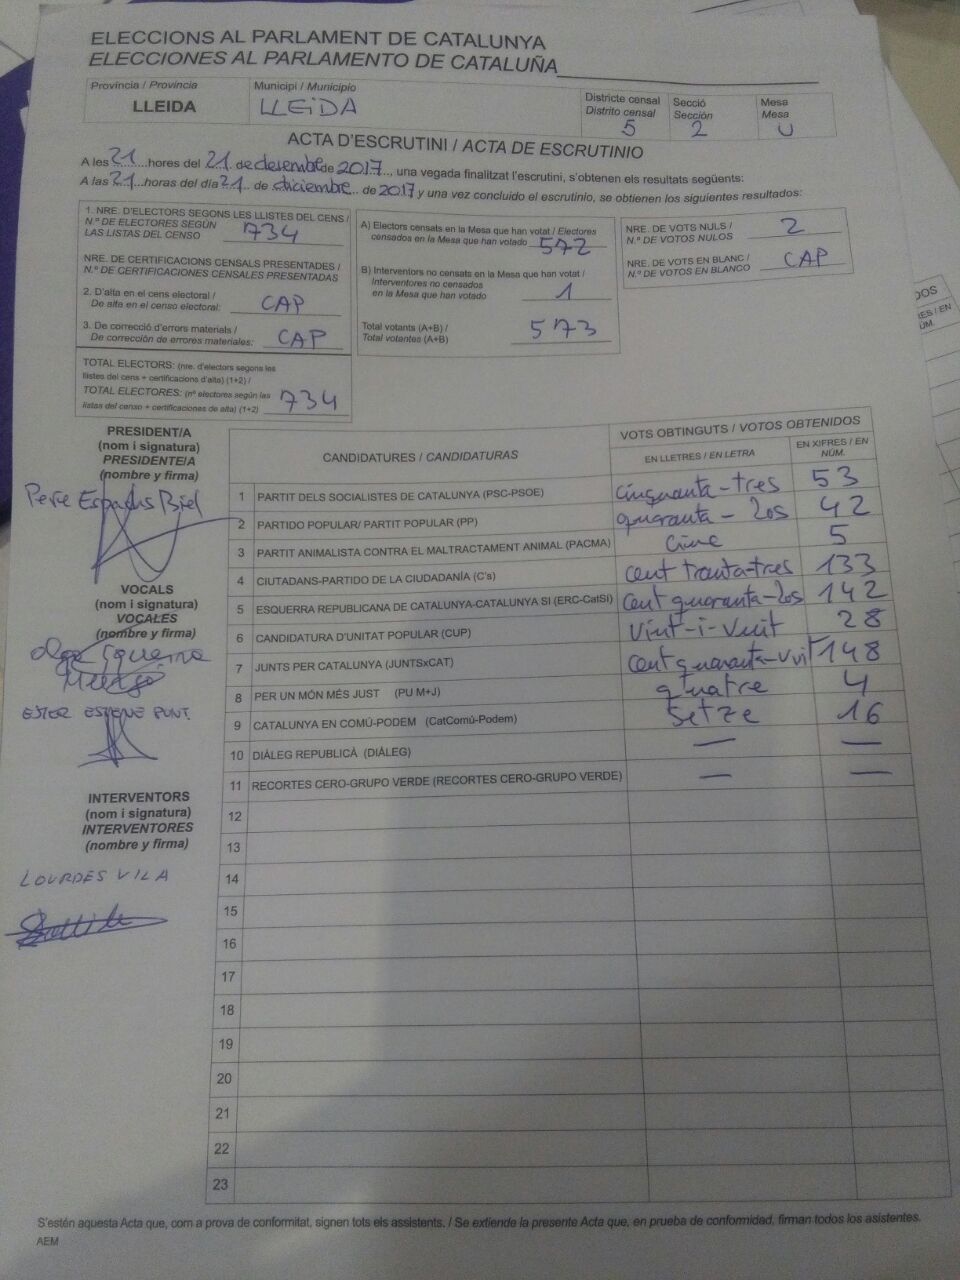 ELECCIONS AL PARLAMENT DE CATALUNYA
ELECCIONES AL PARLAMENTO DE CATALUÑA
Província / Provincia
LLEIDA
Municipi / Municipio
LLEIDA
Districte censal
Distrito censal
5
Secció
Sección
2
Mesa
Mesa
U
ACTA D'ESCRUTINI / ACTA DE ESCRUTINIO
A les 21 hores del 21 de desembre de 2017, una vegada finalitzat l'escrutini, s'obtenen els resultats següents:
A las 21 horas del día 21 de diciembre de 2017 y una vez concluido el escrutinio, se obtienen los siguientes resultados:
1. NRE. D'ELECTORS SEGONS LES LLISTES DEL CENS /
N.º DE ELECTORES SEGÚN
LAS LISTAS DEL CENSO 734
NRE. DE CERTIFICACIONS CENSALS PRESENTADES /
N.º DE CERTIFICACIONES CENSALES PRESENTADAS
2. D'alta en el cens electoral /
De alta en el censo electoral: CAP
3. De correcció d'errors materials /
De corrección de errores materiales: CAP
TOTAL ELECTORS: (nre. d'electors segons les
llistes del cens + certificacions d'alta) (1+2) /
TOTAL ELECTORES: (nº electores según las
listas del censo + certificaciones de alta) (1+2) 734
A) Electors censats en la Mesa que han votat / Electores
censados en la Mesa que han votado 572
B) Interventors no censats en la Mesa que han votat /
Interventores no censados
en la Mesa que han votado 1
Total votants (A+B) /
Total votantes (A+B) 573
NRE. DE VOTS NULS /
N.º DE VOTOS NULOS 2
NRE. DE VOTS EN BLANC /
N.º DE VOTOS EN BLANCO CAP
PRESIDENT/A
(nom i signatura)
PRESIDENTE/A
(nombre y firma)
Pere Espadus Biel
VOCALS
(nom i signatura)
VOCALES
(nombre y firma)
Olga
ESTER ESTEVE PUNT
INTERVENTORS
(nom i signatura)
INTERVENTORES
(nombre y firma)
LOURDES VILA
CANDIDATURES / CANDIDATURAS
VOTS OBTINGUTS / VOTOS OBTENIDOS
EN LLETRES / EN LETRA
EN XIFRES / EN
NÚM.
1 PARTIT DELS SOCIALISTES DE CATALUNYA (PSC-PSOE) cinquanta-tres 53
2 PARTIDO POPULAR/ PARTIT POPULAR (PP) quaranta-dos 42
3 PARTIT ANIMALISTA CONTRA EL MALTRACTAMENT ANIMAL (PACMA) Cinc 5
4 CIUTADANS-PARTIDO DE LA CIUDADANÍA (C's) cent trenta-tres 133
5 ESQUERRA REPUBLICANA DE CATALUNYA-CATALUNYA SI (ERC-CatSí) cent quaranta-dos 142
6 CANDIDATURA D'UNITAT POPULAR (CUP) Vint-i-vuit 28
7 JUNTS PER CATALUNYA (JUNTSxCAT) cent quaranta-vuit 148
8 PER UN MÓN MÉS JUST (PU M+J) quatre 4
9 CATALUNYA EN COMÚ-PODEM (CatComú-Podem) Setze 16
10 DIÀLEG REPUBLICÀ (DIÀLEG) — —
11 RECORTES CERO-GRUPO VERDE (RECORTES CERO-GRUPO VERDE) — —
12
13
14
15
16
17
18
19
20
21
22
23
S'estén aquesta Acta que, com a prova de conformitat, signen tots els assistents. / Se extiende la presente Acta que, en prueba de conformidad, firman todos los asistentes.
AEM